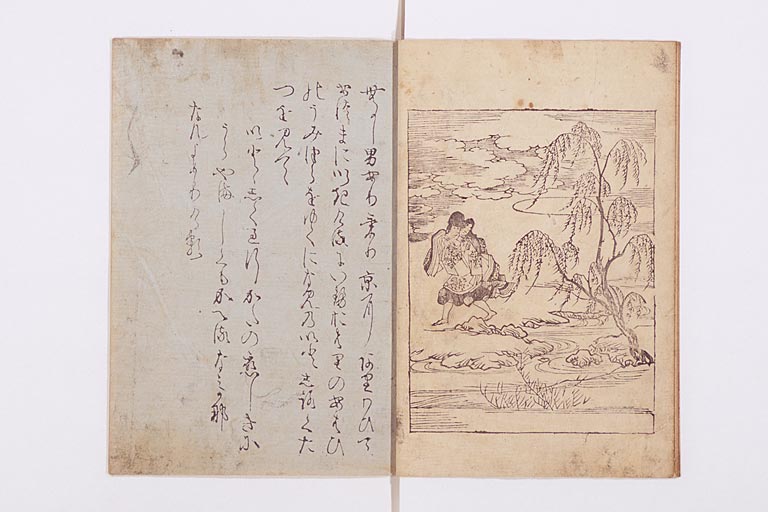 むかし男ありけり京にありわひて
あつまにいきけるにいせおはりのあはひ
のうみつらをゆくになみのいとしろくた
つを見て
いとゝしく過行かたの恋しきに
うら山しくもかへるなみかな
となんよめりける